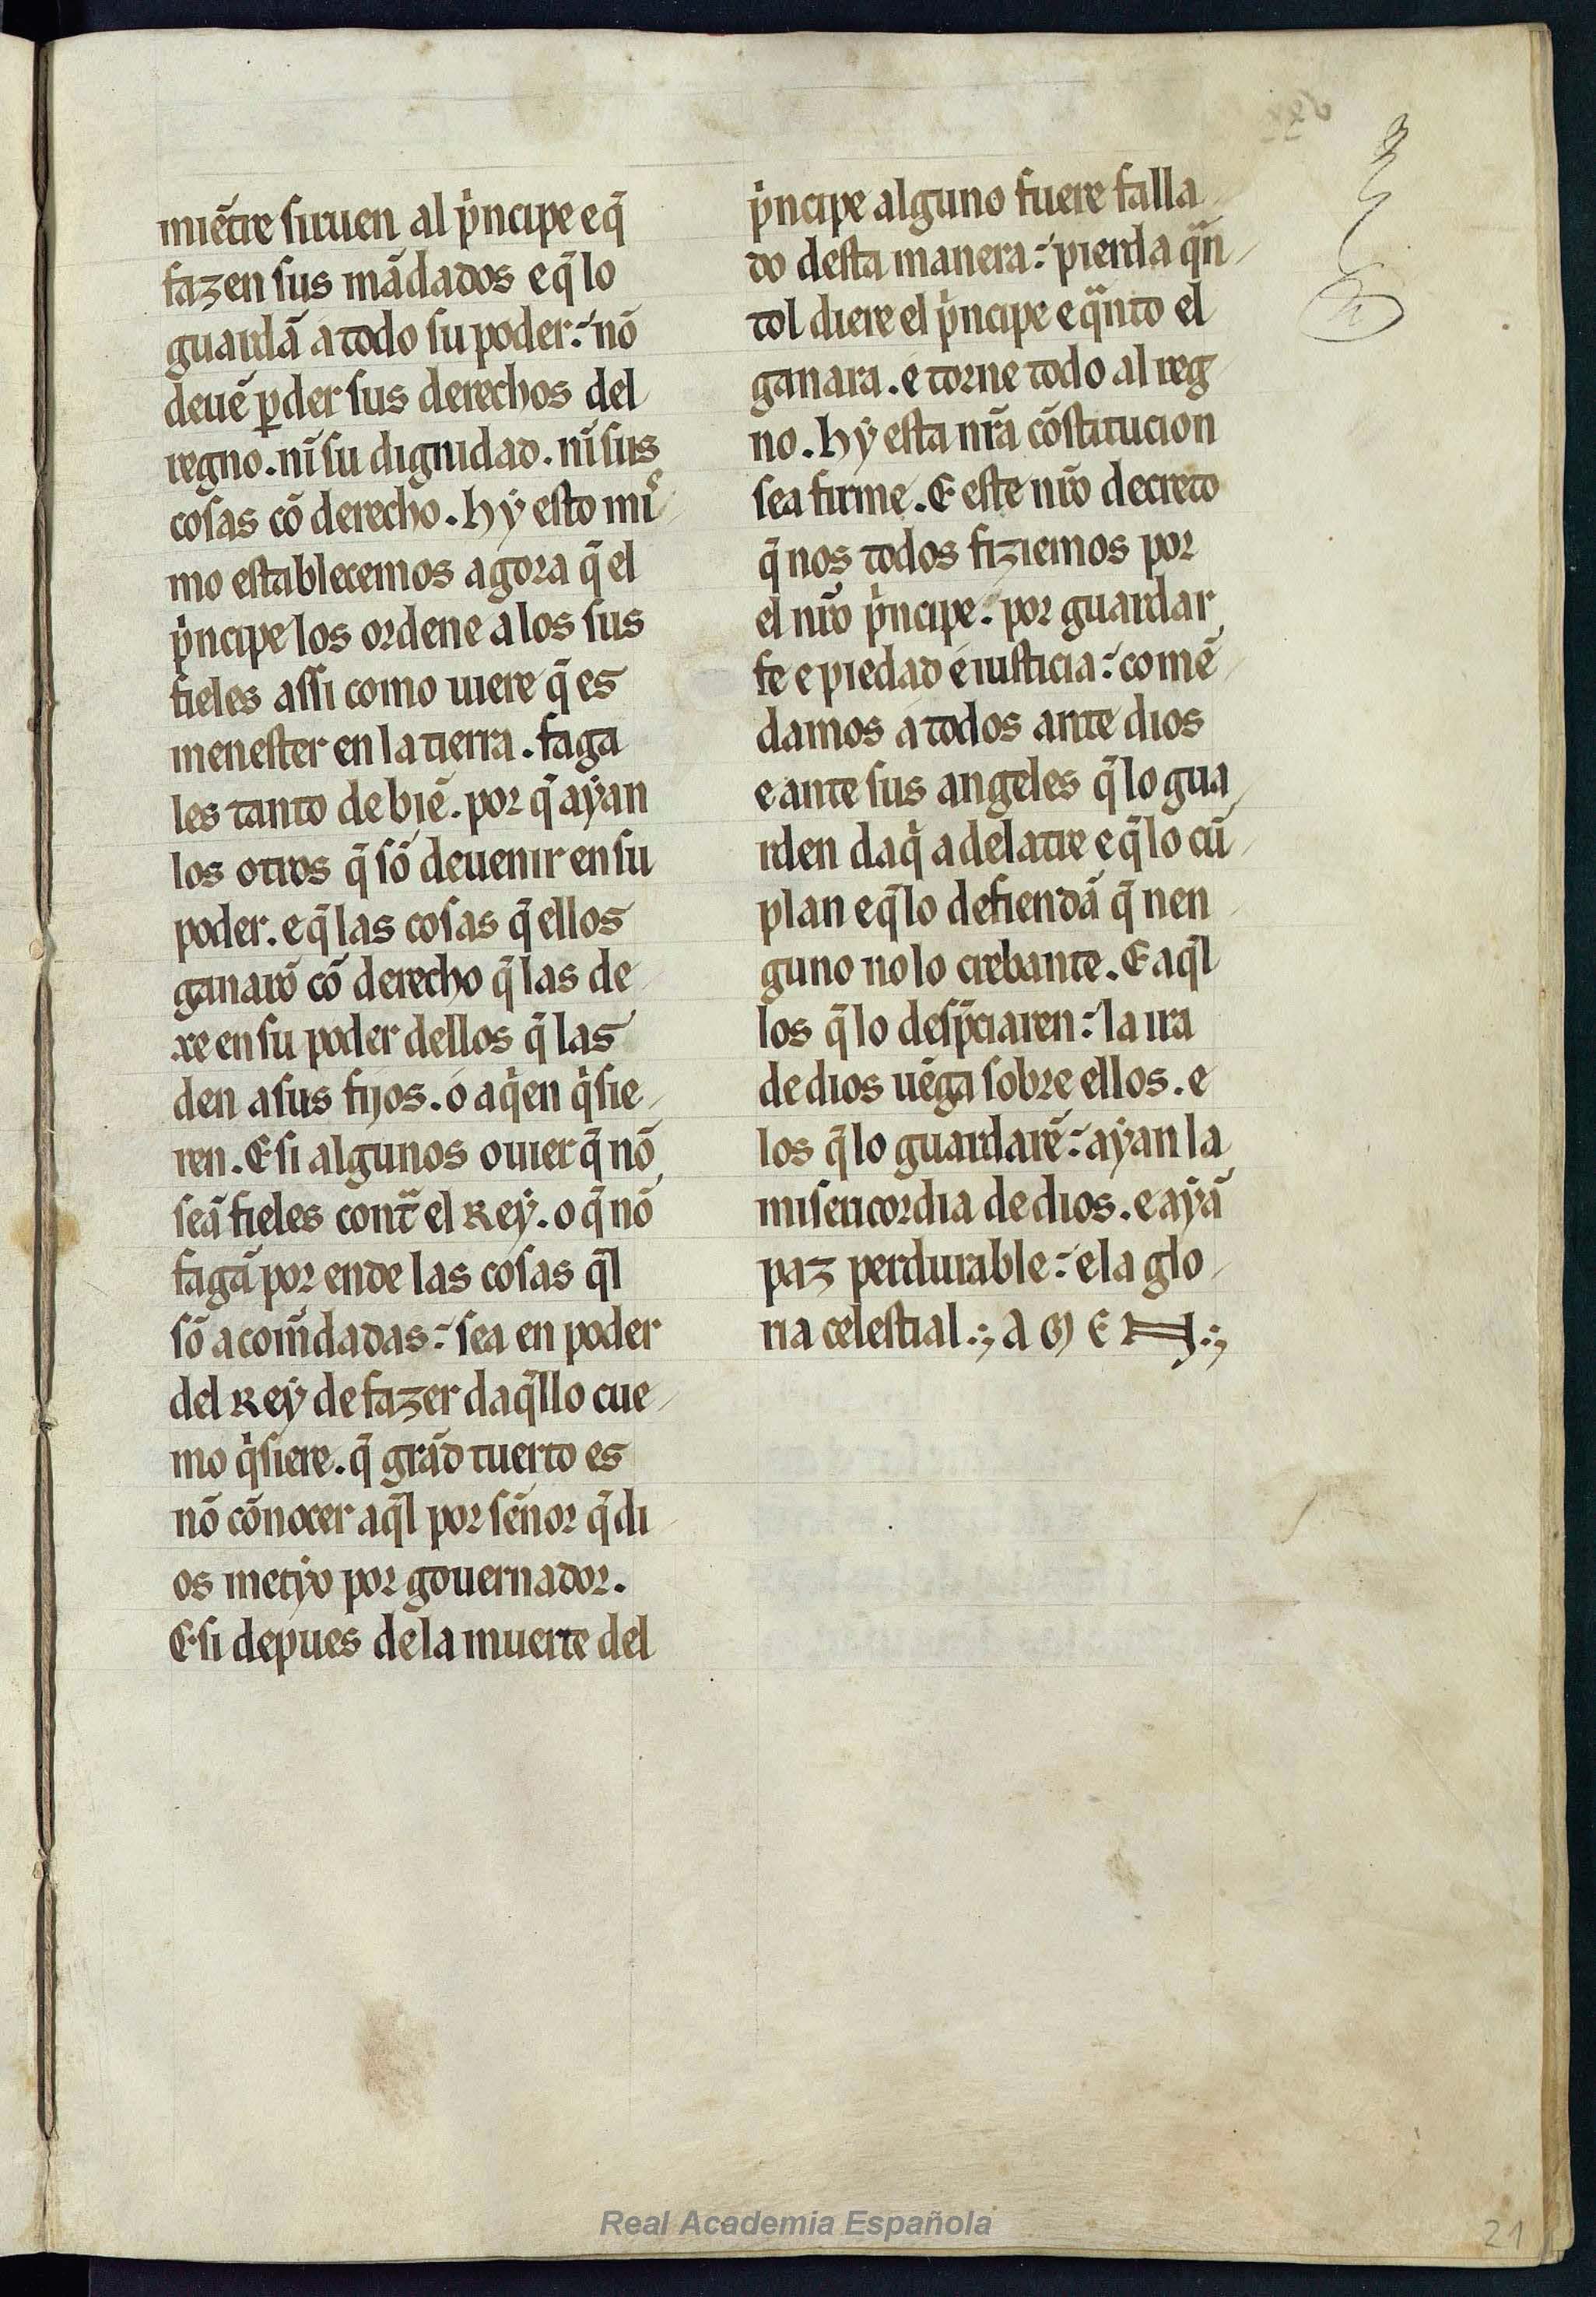 miẽtre siruen al pͥncipe e q̃
fazen sus mãdados e q̃ lo
guardã a todo su poder. nõ
deuẽ ꝑder sus derechos del
regno. nĩ su dignidad. nĩ sus
cosas cõ derecho. hẏ esto miͤ
mo establecemos agora q̃ el
pͥncipe los ordene a los sus
fieles assi como uiere q̃ es
menester en la tierra. faga
les tanto de biẽ. por q̃ aẏan
los otros q̃ sõ deuenir en su
poder. e q̃ las cosas q̃ ellos
ganarõ cõ derecho q̃ las de
xe en su poder dellos q̃ las
den a sus fijos. o a qͥen qͥsie
ren. E si algunos ouier q̃ nõ
seã fieles contᷓ el Reẏ. o q̃ nõ
fagã por ende las cosas q̃l
sõ acom̃dadas. sea en poder
del Reẏ de fazer daq̃llo cue
mo qͥsiere. q̃ grãd tuerto es
nõ cõnocer aq̃l por sẽnor q̃ di
os metẏo por gouernador.
E si depues de la muerte del
pͥncipe alguno fuere falla
do desta manera. pierda qᷓn
tol diere el pͥncipe e qᷓnto el
ganara. e torne todo al reg
no. hẏ esta nrã cõstitucion
sea firme. E este nrõ decreto
q̃ nos todos fiziemos por
el nrõ pͥncipe. por guardar
fe e piedad e iusticia. comẽ
damos a todos ante dios
e ante sus angeles q̃ lo gua
rden daqͥ adelatre e q̃ lo cũ
plan e q̃ lo defiendã q̃ nen
guno no lo crebante. E aq̃l
los q̃ lo desp̃ciaren. la ira
de dios uẽga sobre ellos. e
los q̃ lo guardarẽ. aẏan la
misericordia de dios. e aẏã
paz perdurable. e la glo
ria celestial. AMEN.
Real Academia Española
21